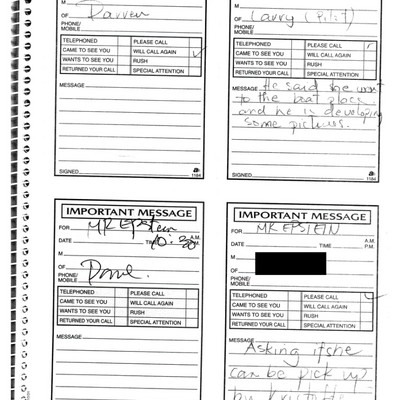 M
OF Darren
PHONE/
MOBILE
TELEPHONED PLEASE CALL
CAME TO SEE YOU WILL CALL AGAIN
WANTS TO SEE YOU RUSH
RETURNED YOUR CALL SPECIAL ATTENTION
MESSAGE
SIGNED
1184
M
OF Larry (Pilot)
PHONE/
MOBILE
TELEPHONED PLEASE CALL
CAME TO SEE YOU WILL CALL AGAIN
WANTS TO SEE YOU RUSH
RETURNED YOUR CALL SPECIAL ATTENTION
MESSAGE He said he went
to the boat place
and he is developing
some pictures.
SIGNED
1184
IMPORTANT MESSAGE
FOR MR Epstein
DATE TIME 10:30 A.M.
P.M.
M
OF
PHONE/
MOBILE
TELEPHONED PLEASE CALL
CAME TO SEE YOU WILL CALL AGAIN
WANTS TO SEE YOU RUSH
RETURNED YOUR CALL SPECIAL ATTENTION
MESSAGE
IMPORTANT MESSAGE
FOR MR EPSTEIN
DATE TIME A.M.
P.M.
M
OF
PHONE/
MOBILE
TELEPHONED PLEASE CALL
CAME TO SEE YOU WILL CALL AGAIN
WANTS TO SEE YOU RUSH
RETURNED YOUR CALL SPECIAL ATTENTION
MESSAGE
Asking if she
can be pick up
by